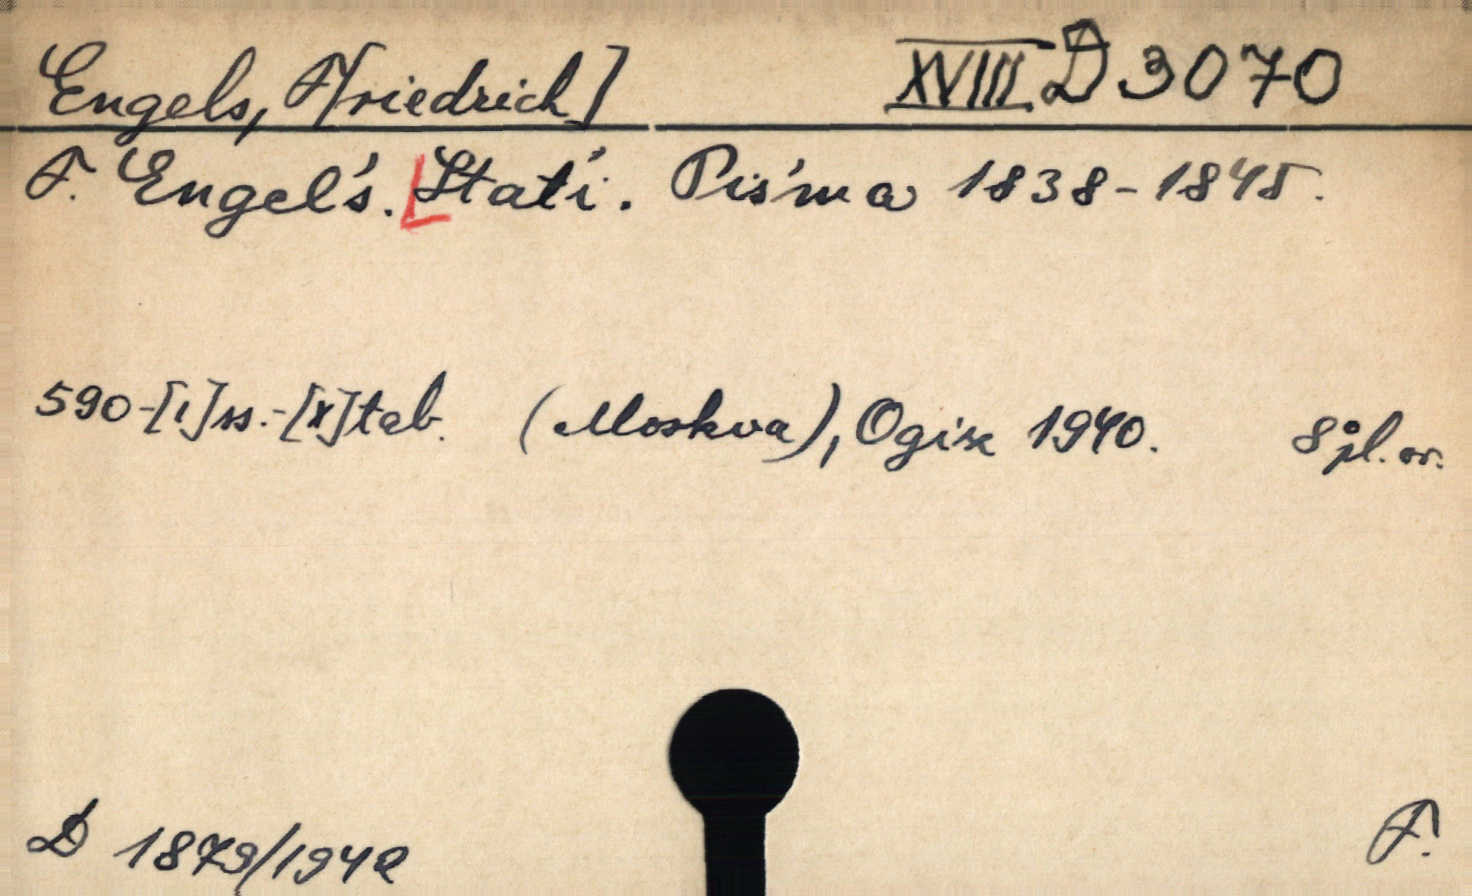 Engels, F[riedrich] XVIII D 3070
F. Engel's. Stat'i. Pis'ma 1838-1845.
590-[1]ss.-[x]tab. (Moskva), Ogiz 1940. 8° pl. or.
D 1879/1942
F.